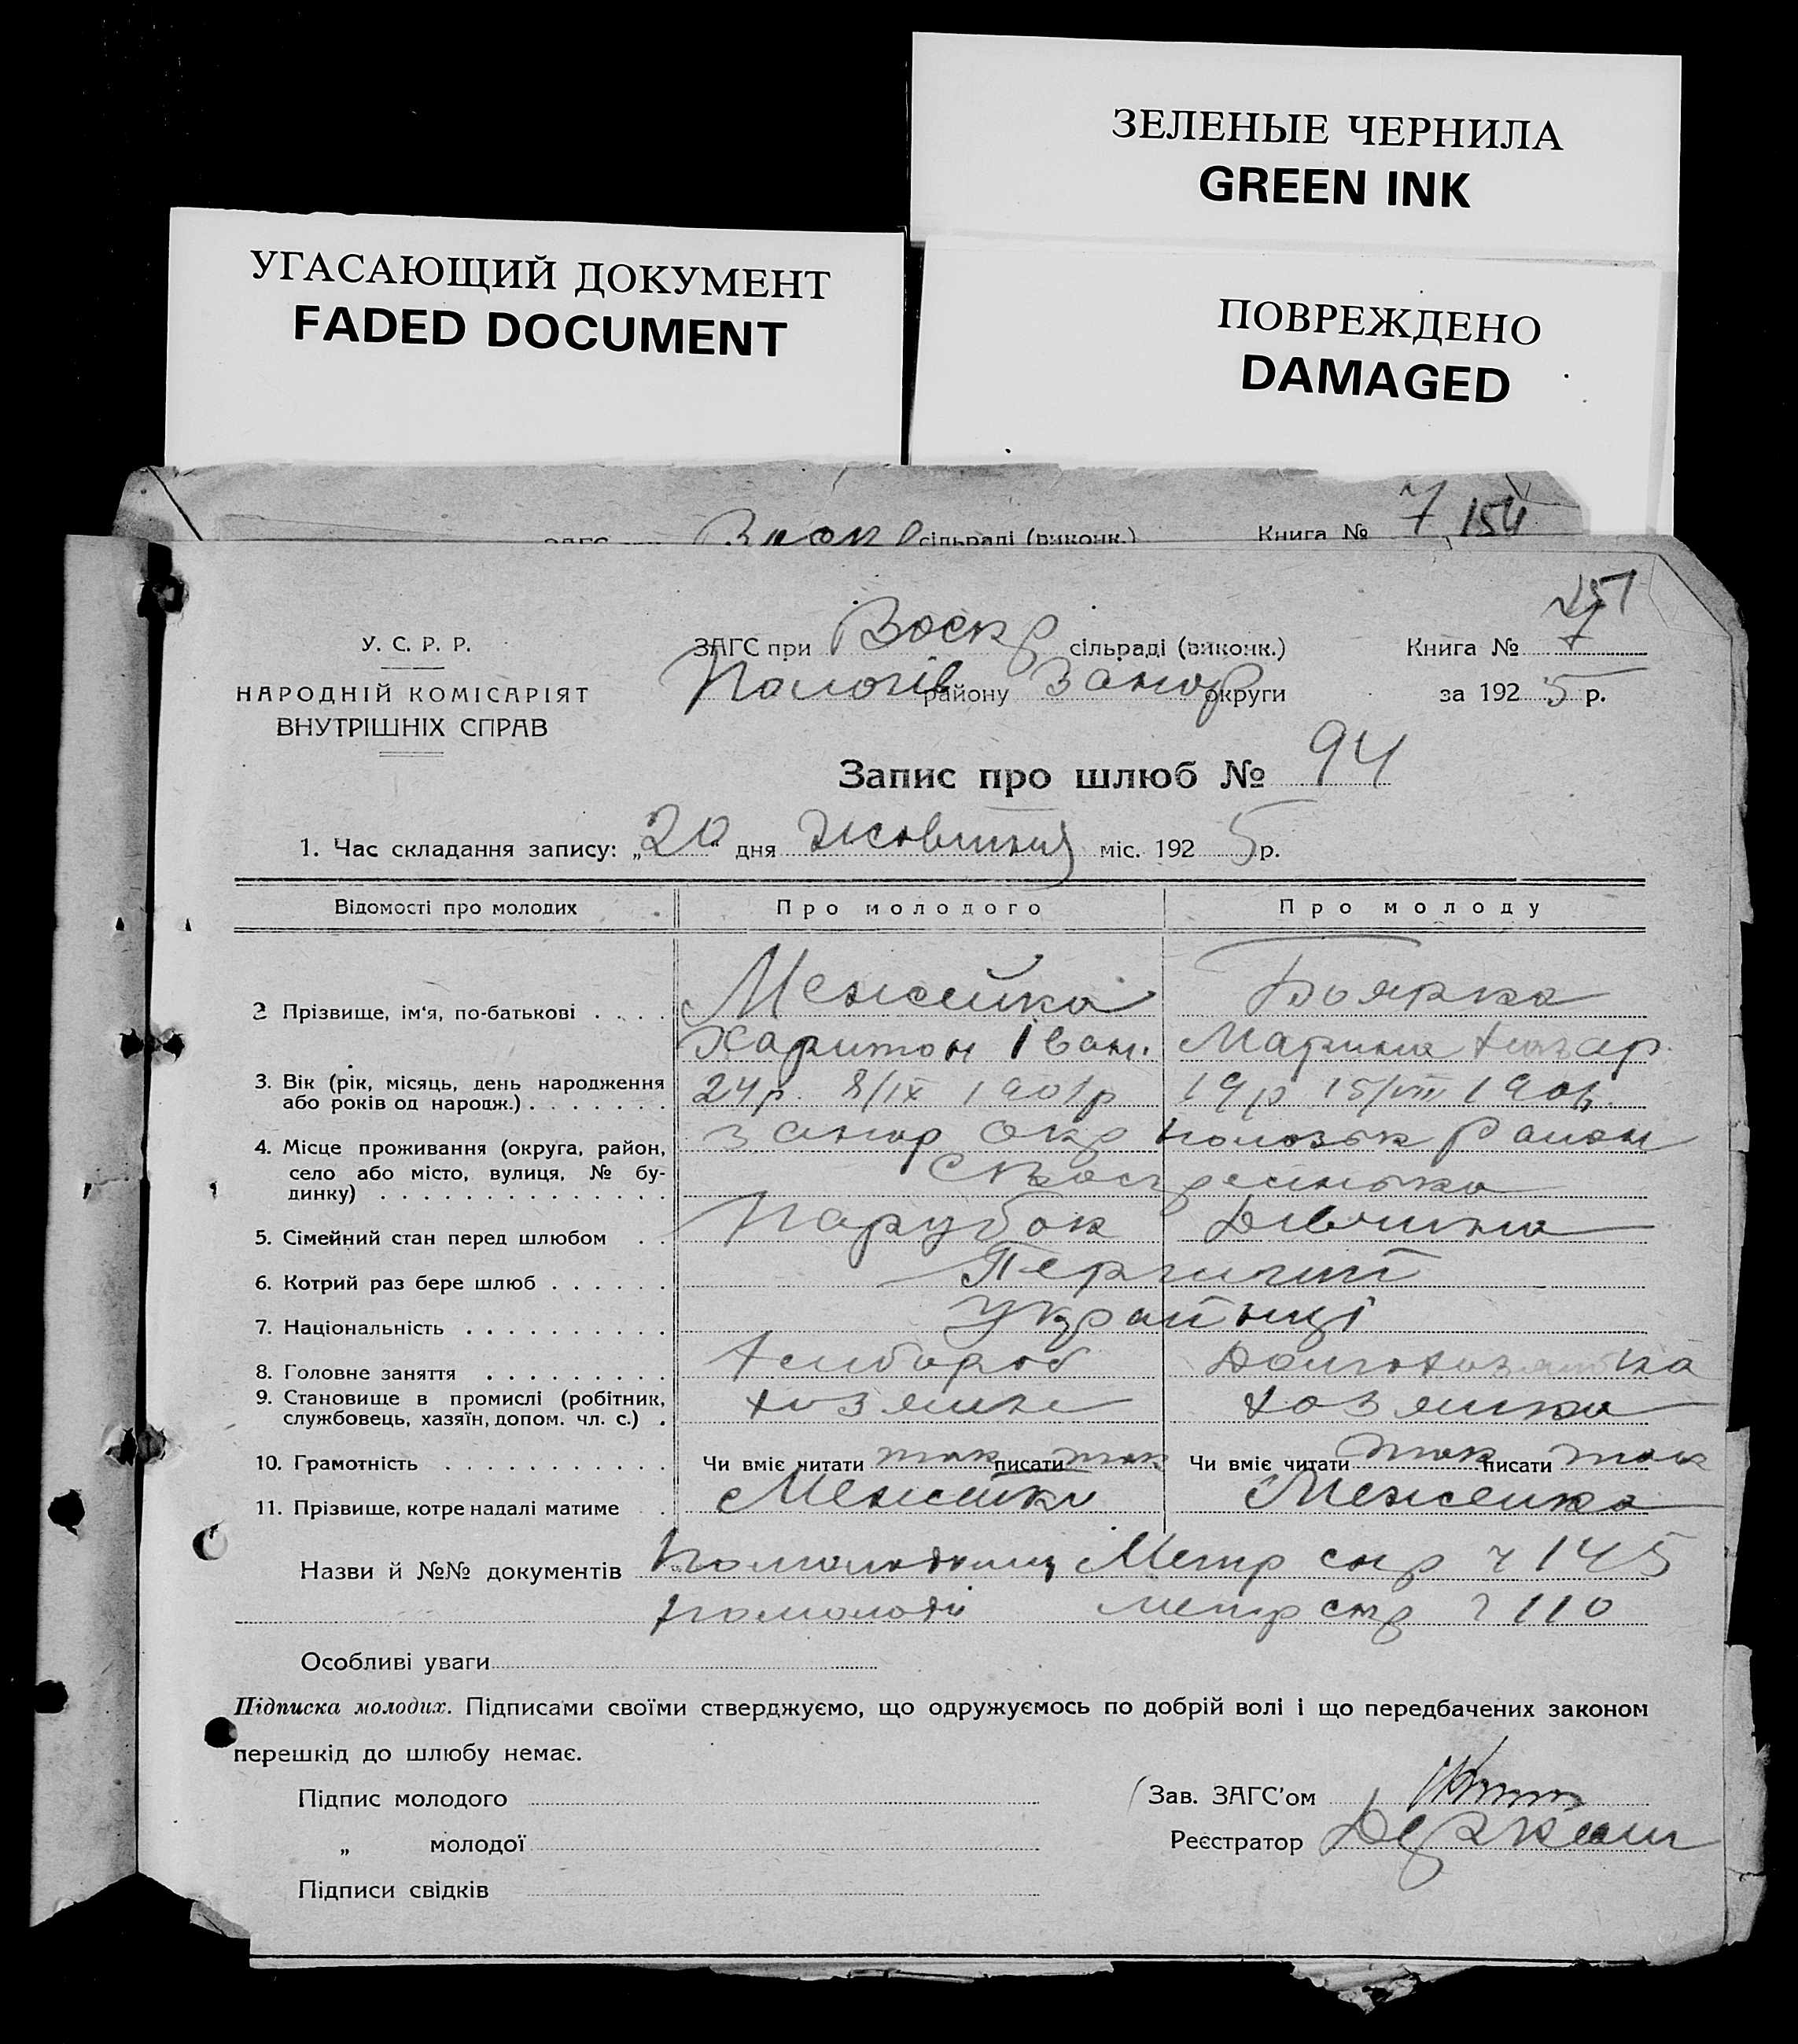 ЗЕЛЕНЫЕ ЧЕРНИЛА
GREEN INK
УГАСАЮЩИЙ ДОКУМЕНТ
FADED DOCUMENT
ПОВРЕЖДЕНО
DAMAGED
сільраді (виконк.) Книга № 7 154
151
У. С. Р. Р. ЗАГС при Воскр сільраді (виконк.) Книга № 7
НАРОДНІЙ КОМІСАРІЯТ Пологів району Запор округи за 1925 р.
ВНУТРІШНІХ СПРАВ
Запис про шлюб № 94
1. Час складання запису: „20" дня Жовтня міс. 1925 р.
Відомості про молодих Про молодого Про молоду
2 Прізвище, ім'я, по-батькові . . . . Менжейко Боярка
Харитон Іван. Марина Назар.
3. Вік (рік, місяць, день народження
або років од народж.) . . . . . . . 24 р. 8/IX 1901р 19 р 15/VIII 190
4. Місце проживання (округа, район,
село або місто, вулиця, № бу-
динку) . . . . . . . . . . . . . . Запор Окр район
5. Сімейний стан перед шлюбом . . Парубок Дівчина
6. Котрий раз бере шлюб . . . . . . Перший
7. Національність . . . . . . . . . . Українці
8. Головне заняття . . . . . . . . . Хлібороб
9. Становище в промислі (робітник,
службовець, хазяїн, допом. чл. с.) . хозяин хозяйка
10. Грамотність . . . . . . . . . . . Чи вміє читати так писати так Чи вміє читати так писати так
11. Прізвище, котре надалі матиме . Менжейко Менжейко
Назви й №№ документів По молодому Метр спр ч 145
по молоді метр спр ч 110
Особливі уваги
Підписка молодих. Підписами своїми стверджуємо, що одружуємось по добрій волі і що передбачених законом
перешкід до шлюбу немає.
Підпис молодого Зав. ЗАГС'ом
„ молодої Реєстратор Деркач
Підписи свідків